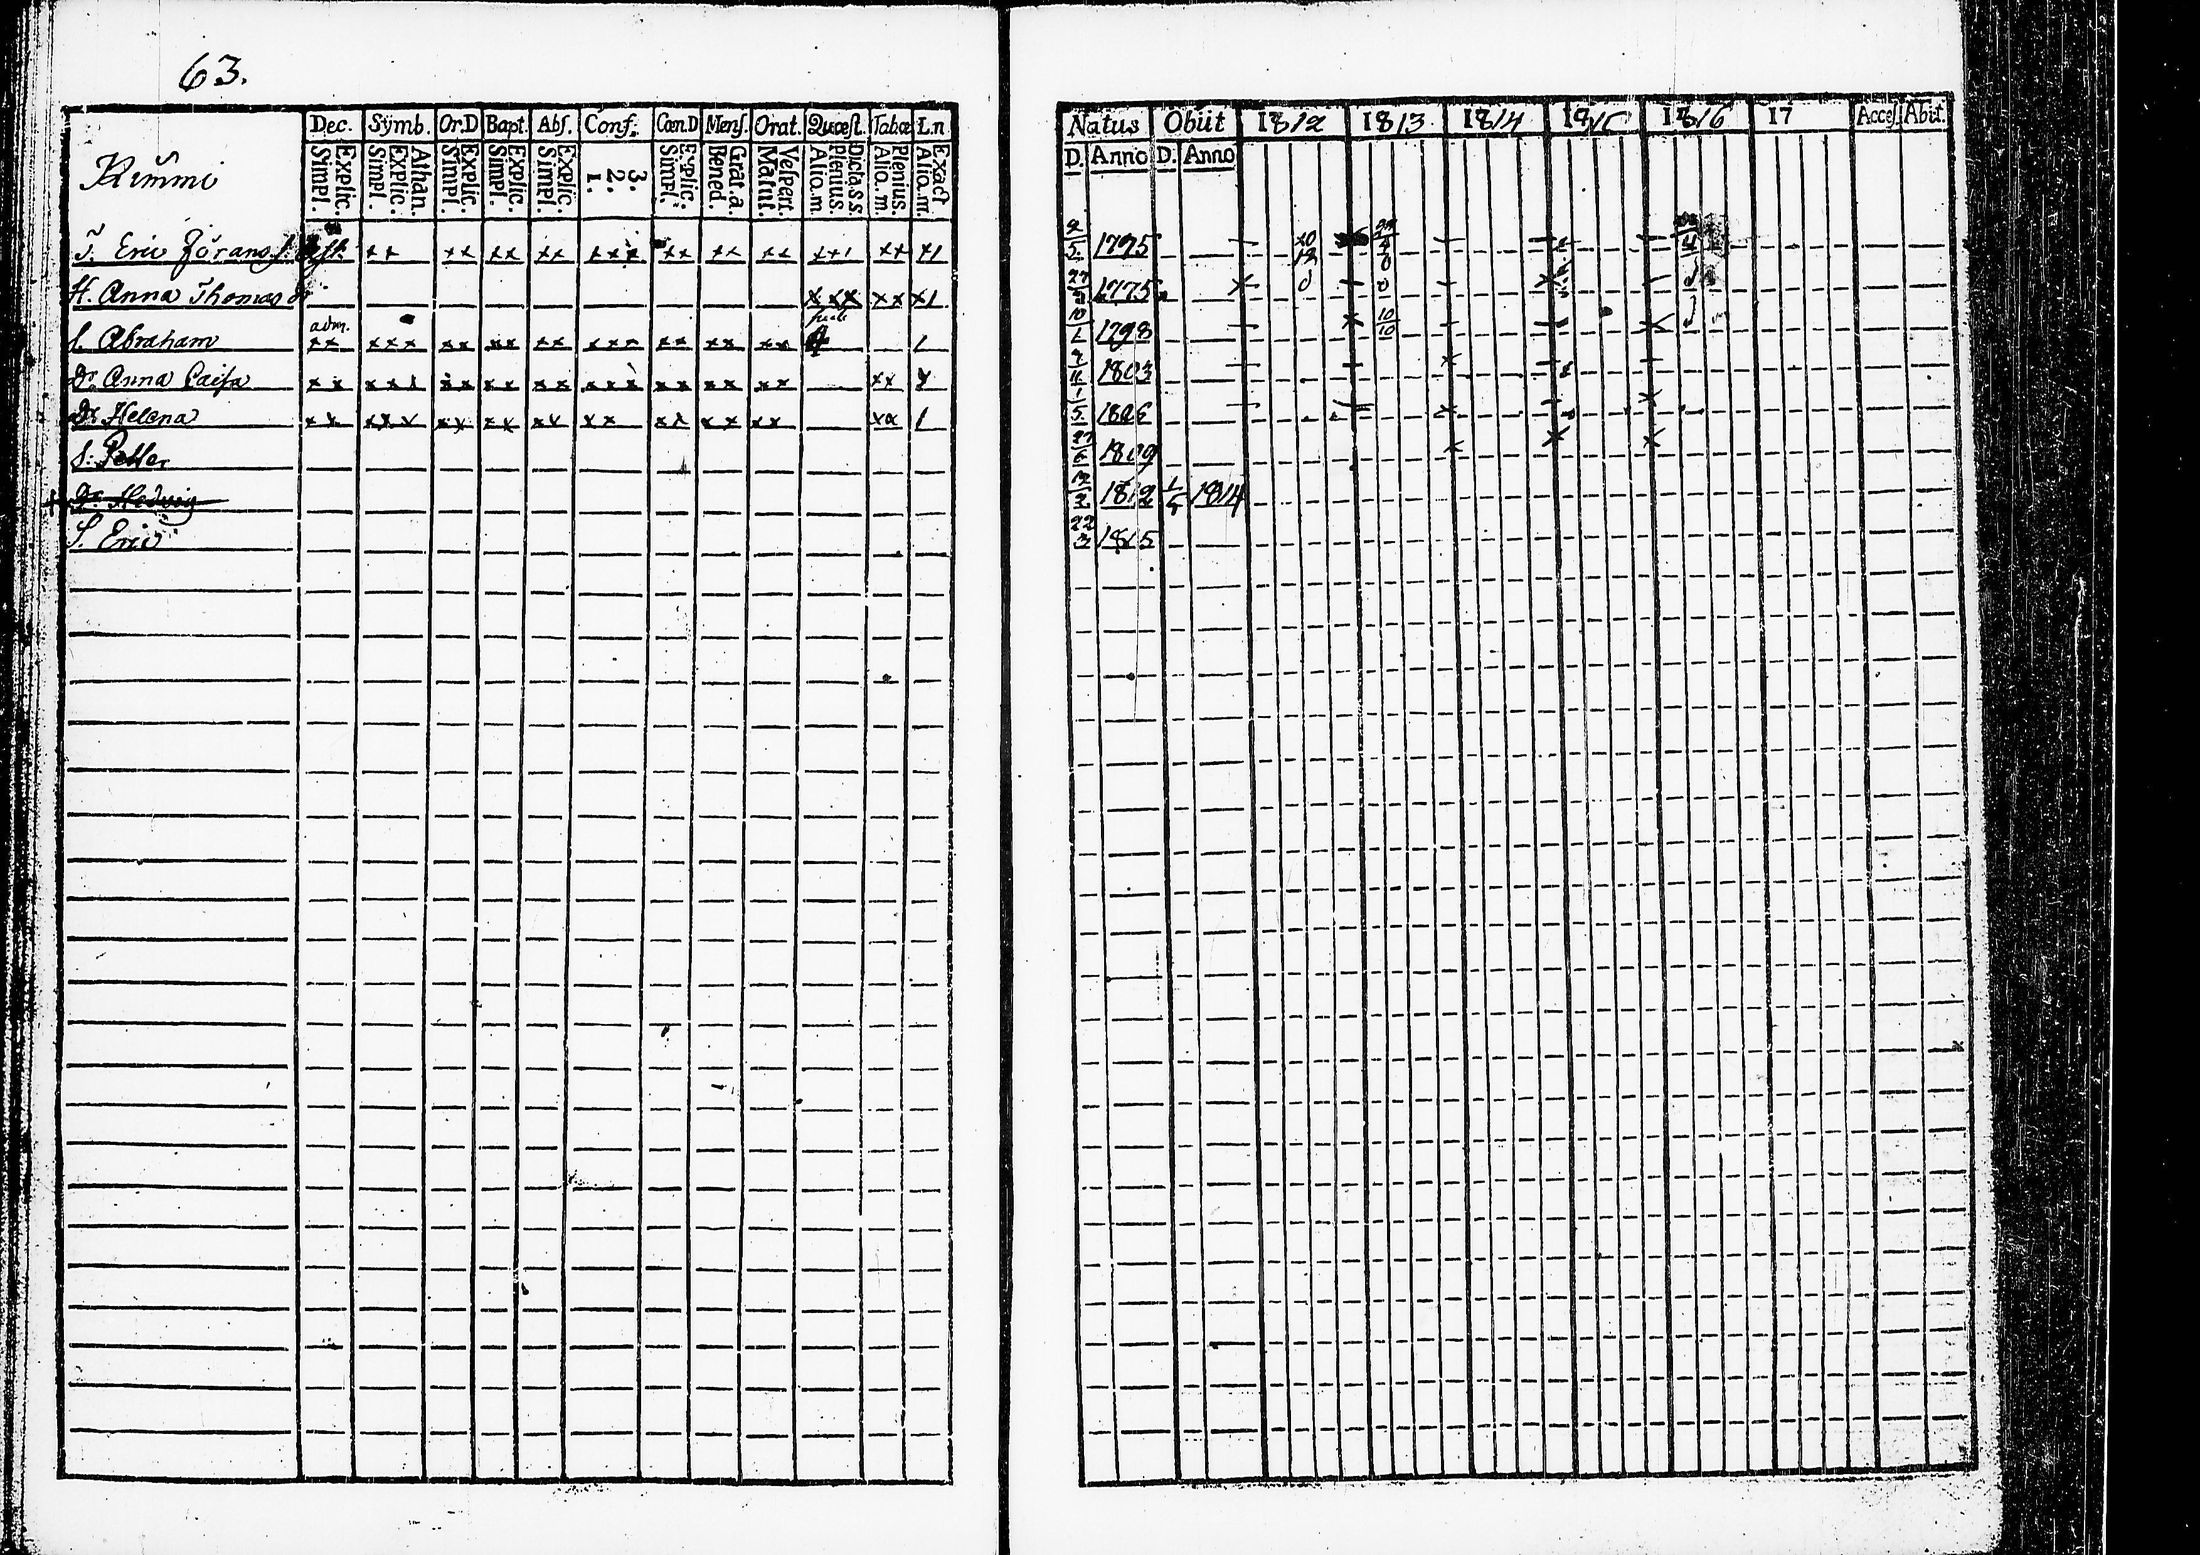 63.
Dec. Symb. Or.D Bapt. Abſ. Conf. Cœn.D Menſ. Orat. Quæst. Tabœ L.n
Explic. Simpl. Athan. Explic. Simpl. Explic. Simpl. Explic. Simpl. Explic. Simpl. 3. 2. 1. Explic. Simpl. Grat. a. Bened. Veſpert. Matut. Dicta. s.s. Plenius. Alio. m. Plenius. Alio. m. Exact Alio. m.
Kimmi
T. Eric Görans ſ.
H. Anna Thomas dr
ſ. Abraham adm.
Dr. Anna Caisa
Dr. Helena
S: Petter
Dr. Hedvig
S. Eric
Natus Obiit 1812 1813 1814 1815 1816 17 Acceſ. Abit.
D. Anno D. Anno
2/5 1775 20/12
27/9 1775
10/1 1798 10/10
1803
1/5 1806
27/6 1809
12/2 1812 1/5 1814
22/3 1815